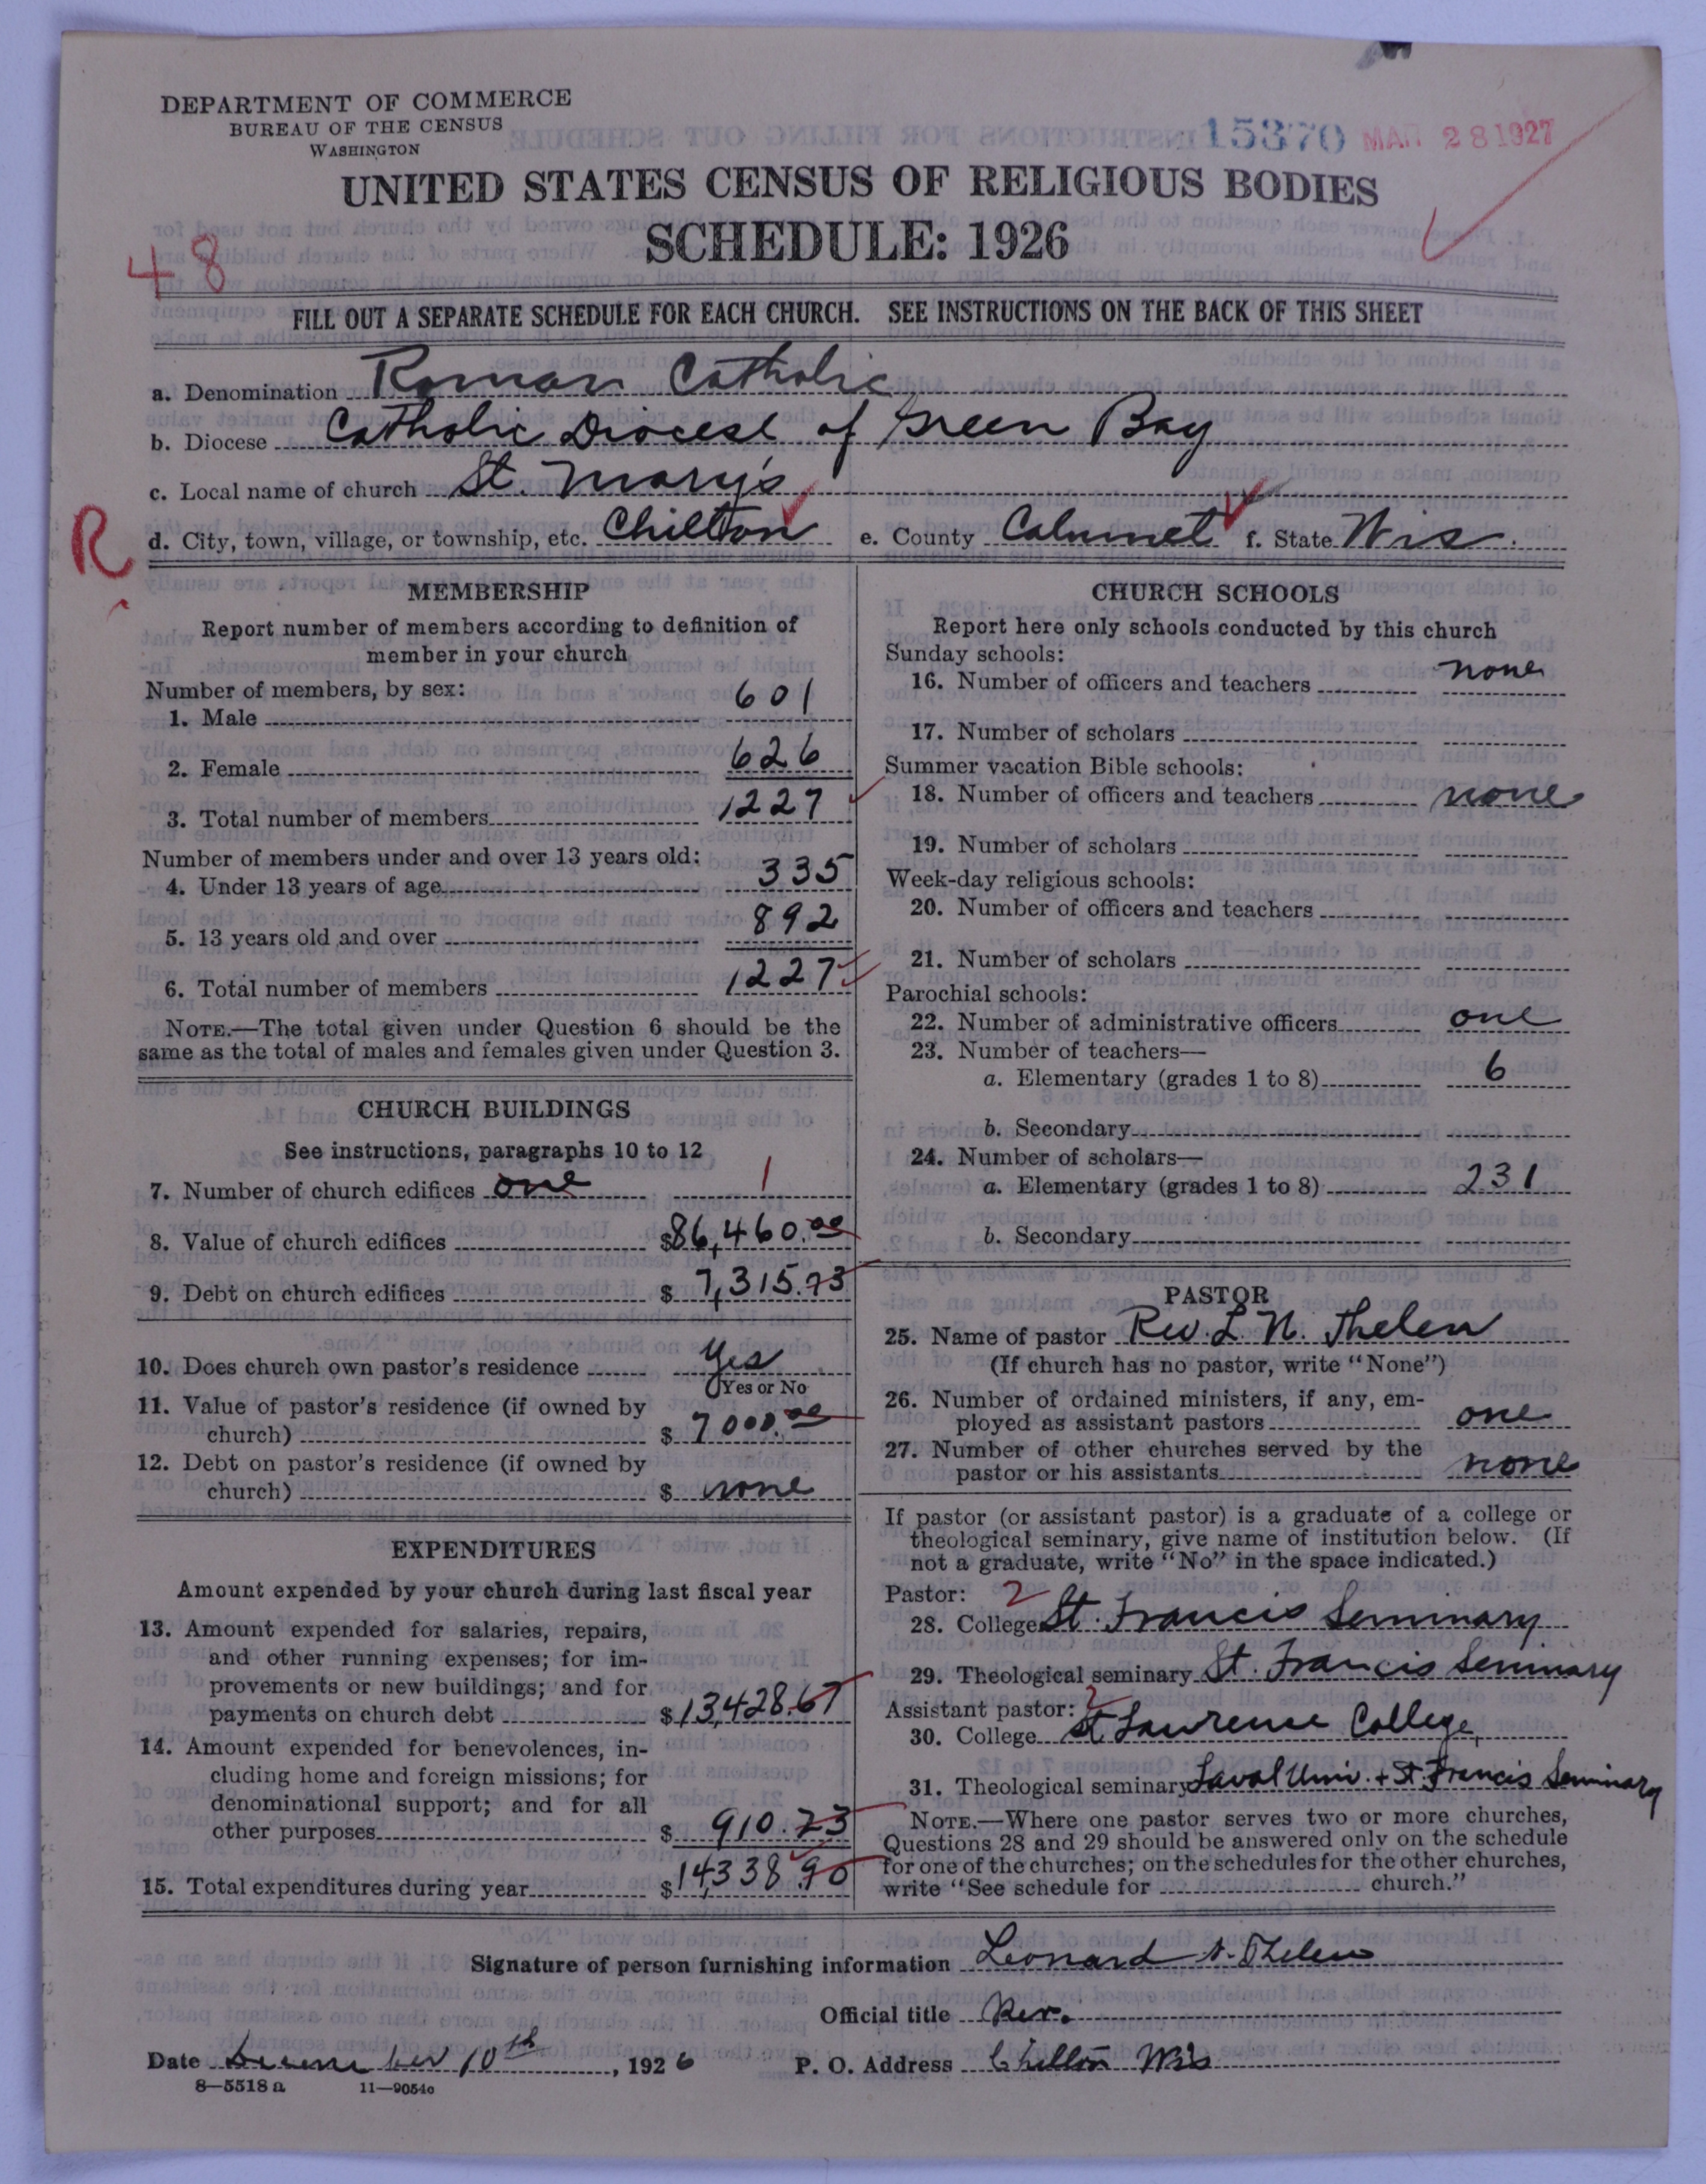 DEPARTMENT OF COMMERCE
BUREAU OF THE CENSUS
WASHINGTON
15370 MAR 28 1927
UNITED STATES CENSUS OF RELIGIOUS BODIES
SCHEDULE: 1926
48
FILL OUT A SEPARATE SCHEDULE FOR EACH CHURCH. SEE INSTRUCTIONS ON THE BACK OF THIS SHEET
a. Denomination Roman Catholic
b. Diocese Catholic Diocese of Green Bay
c. Local name of church St. Mary's
R
d. City, town, village, or township, etc. Chilton e. County Calumet f. State Wis.
MEMBERSHIP
Report number of members according to definition of
member in your church
Number of members, by sex:
1. Male 601
2. Female 626
3. Total number of members 1227
Number of members under and over 13 years old:
4. Under 13 years of age 335
5. 13 years old and over 892
6. Total number of members 1227
NOTE.—The total given under Question 6 should be the
same as the total of males and females given under Question 3.
CHURCH BUILDINGS
See instructions, paragraphs 10 to 12
7. Number of church edifices one 1
8. Value of church edifices $86,460.00
9. Debt on church edifices $7,315.73
10. Does church own pastor's residence Yes
Yes or No
11. Value of pastor's residence (if owned by
church) $7000.00
12. Debt on pastor's residence (if owned by
church) $ none
EXPENDITURES
Amount expended by your church during last fiscal year
13. Amount expended for salaries, repairs,
and other running expenses; for im-
provements or new buildings; and for
payments on church debt $13,428.67
14. Amount expended for benevolences, in-
cluding home and foreign missions; for
denominational support; and for all
other purposes $910.23
15. Total expenditures during year $14,338.90
CHURCH SCHOOLS
Report here only schools conducted by this church
Sunday schools:
16. Number of officers and teachers none
17. Number of scholars
Summer vacation Bible schools:
18. Number of officers and teachers none
19. Number of scholars
Week-day religious schools:
20. Number of officers and teachers
21. Number of scholars
Parochial schools:
22. Number of administrative officers one
23. Number of teachers—
a. Elementary (grades 1 to 8) 6
b. Secondary
24. Number of scholars—
a. Elementary (grades 1 to 8) 231
b. Secondary
PASTOR
25. Name of pastor Rev. L. N. Thelen
(If church has no pastor, write "None")
26. Number of ordained ministers, if any, em-
ployed as assistant pastors one
27. Number of other churches served by the
pastor or his assistants none
If pastor (or assistant pastor) is a graduate of a college or
theological seminary, give name of institution below. (If
not a graduate, write "No" in the space indicated.)
Pastor: 2
28. College St. Francis Seminary
29. Theological seminary St. Francis Seminary
Assistant pastor: 2
30. College St Lawrence College
31. Theological seminary Laval Univ. + St. Francis Seminary
NOTE.—Where one pastor serves two or more churches,
Questions 28 and 29 should be answered only on the schedule
for one of the churches; on the schedules for the other churches,
write "See schedule for church."
Signature of person furnishing information Leonard N. Thelen
Official title Rev.
Date December 10th, 1926 P. O. Address Chilton Wis
8—5518 a 11—9054c